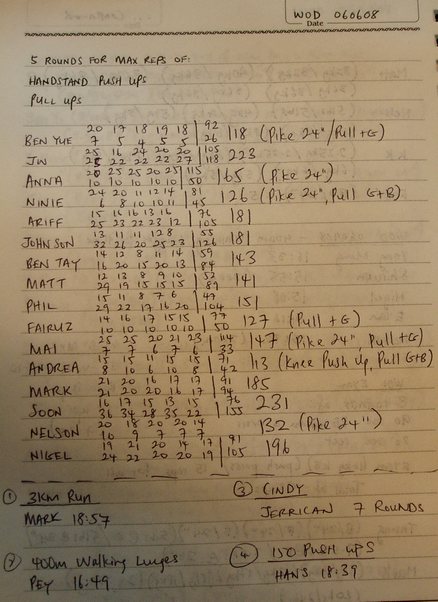 WOD 060608
Date
5 ROUNDS FOR MAX REPS OF:
HANDSTAND PUSH UPS
PULL UPS
20 17 18 19 18 | 92
BEN YUE 7 5 4 5 5 | 26 118 (Pike 24"/Pull+G)
25 16 24 20 20 | 105
JW 25 22 22 22 27 | 118 223
20 25 25 20 25 | 115
ANNA 10 10 10 10 10 | 50 165 (Pike 24")
24 20 11 12 14 | 81
NINIE 6 8 10 10 11 | 45 126 (Pike 24", Pull G+B)
15 16 16 13 16 | 76
ARIFF 25 23 22 23 12 | 105 181
13 11 11 12 8 | 55
JOHNSON 32 26 20 25 23 | 126 181
14 12 8 11 14 | 59
BEN TAY 16 20 15 20 13 | 84 143
12 13 8 9 10 | 52
MATT 29 19 15 15 15 | 89 141
15 11 8 7 6 | 47
PHIL 29 22 17 16 20 | 104 151
14 16 17 15 15 | 77
FAIRUZ 10 10 10 10 10 | 50 127 (Pull+G)
25 25 20 21 23 | 114
MAI 7 7 6 7 6 | 33 147 (Pike 24", Pull+G)
15 15 11 15 15 | 71
ANDREA 8 10 6 10 8 | 42 113 (Knee Push Up, Pull G+B)
21 20 16 17 17 | 91
MARK 21 20 20 16 17 | 94 185
16 17 15 13 15 | 76
SOON 36 34 28 35 22 | 155 231
20 18 20 20 14
NELSON 10 9 7 7 7 132 (Pike 24")
19 21 20 14 17 | 91
NIGEL 24 22 20 20 19 | 105 196
① 3KM Run
MARK 18:57
② 400m Walking Lunges
PEY 16:49
③ CINDY
JERRICAN 7 ROUNDS
④ 150 PUSH UPS
HANS 18:39